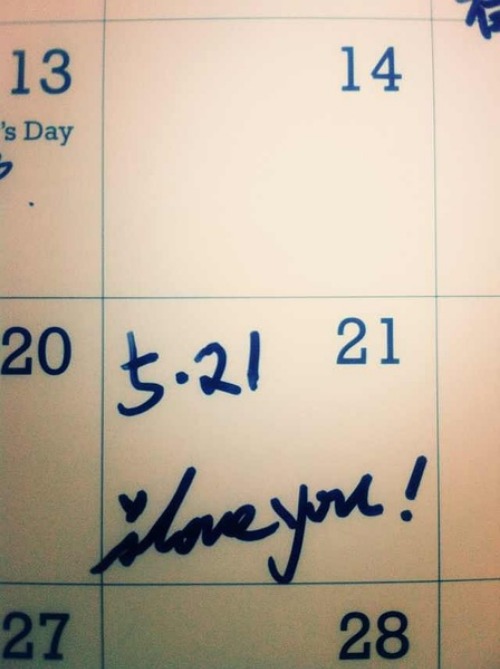 13 14
's Day
20 5.21 21
i love you!
27 28